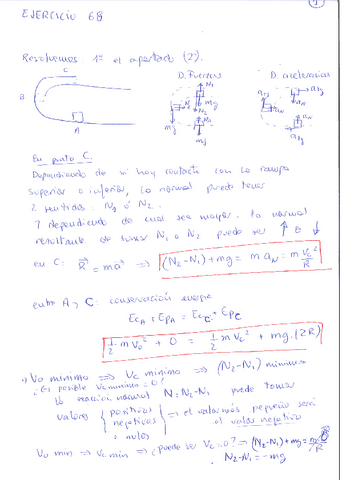 1
EJERCICIO 68
Resolvemos 1º el apartado (2).
D. Fuerzas D. aceleraciones
C
B
A
En punto C.
Dependiendo de si hay contacto con la rampa
superior o inferior, la normal puede tener
2 sentidos: N1 ó N2.
Y dependiendo de cual sea mayor, la normal
resultante de sumar N1 o N2 puede ser ↑ ó ↓
en C: R⃗ = ma⃗ ⇒ (N2-N1)+mg = m aN = m Vc²/R
entre A y C: conservación energía
EcA + EpA = EcC + EpC
½ m V0² + 0 = ½ m Vc² + mg·(2R)
V0 mínimo ⇒ Vc mínimo ⇒ (N2-N1) mínimo
¿Es posible Vc mínimo = 0?
la reacción normal N = N2-N1 puede tomar
valores { positivos negativos o nulos } ⇒ el valor más pequeño será el valor negativo
V0 min ⇒ Vc min ⇒ ¿puede ser Vc=0? ⇒ (N2-N1)+mg = m 0/R
N2-N1 = -mg